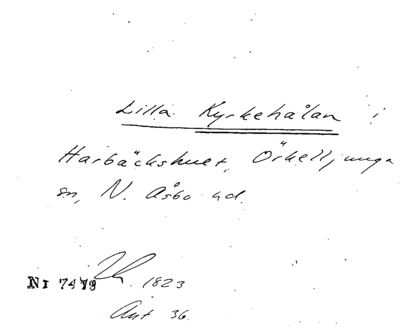 Lilla Kyrkehålan i
Harbäckshult, Örkelljunga
sn, N. Åsbo hd.
NI 7479 1823
Ant 36.